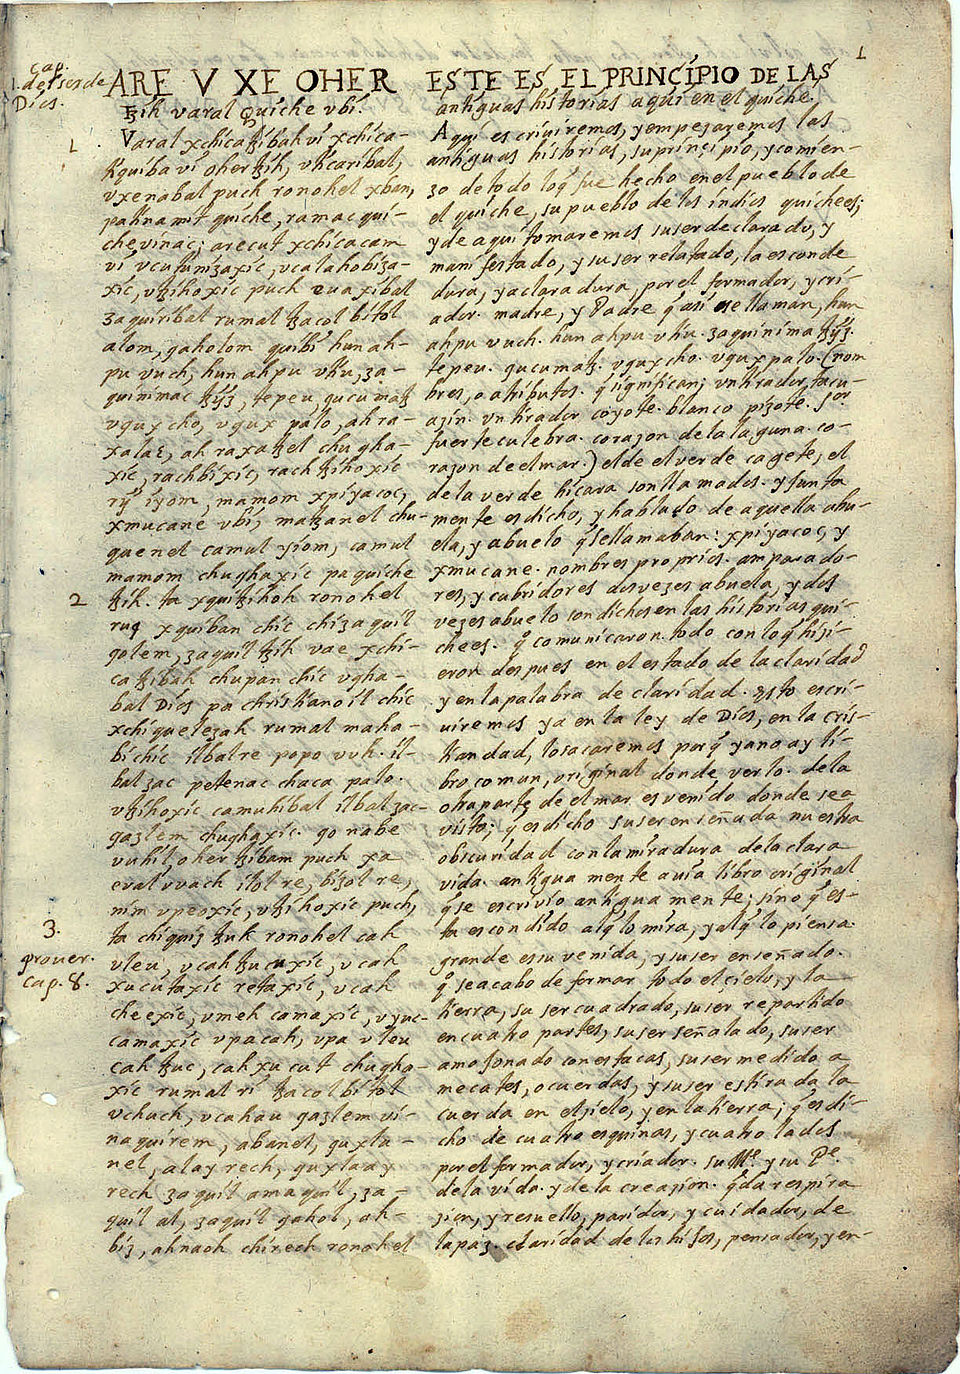 1
cap.
1. del ser de
Dios.
ARE V XE OHER
ꜩih varal Quiche vbi.
1
Varal xchicaꜩibah vi xchica-
tiquiba vi oher ꜩih, vticaribal,
vxenabal puch ronohel xban,
pa tinamit quiche, ramac qui-
che vinac; arecut xchicacam
vi vcutunizaxic, vcalahobiza-
xic, vꜩihoxic puch euaxibal
zaquiribal rumal ꜩacol bitol
alom, qaholom quibi hun ah-
pu vuch, hun ahpu vtiu, za-
quinimac ꜩyz, tepeu, qucumaꜩ
vqux cho, vqux palo, ah ra-
xa laꜫ, ah raxa ꜩel chugha-
xic, rachbixic, rach ꜩihoxic
rÿ iyom, mamom xpiyacoc,
xmucane vbi, maꜩanel chu-
quenel camul yiom, camul
mamom chughaxic pa quiche
2
ꜩih. ta xquiꜩihoh ronohel
ruq xquiban chic chi zaquil
qolem, zaquil ꜩih vae xchi-
caꜩibah chupan chic vgha-
bal Dios pa christianoil chic
xchiquelezah rumal maha-
bi chic ilbal re popo vuh. il-
bal zac petenac chaca palo.
vꜩihoxic camuhibal ilbal zac-
qazlem chughaxic. qo nabe
vuhil, oher ꜩibam puch xa
eual vvach ilol re, bizol re,
nim vpeoxic, vꜩihoxic puch,
3.
ta chiquiz ꜩuk ronohel cah
prouer.
cap. 8.
vleu, vcah ꜩucuxic, vcah
xucutaxic retaxic, vcah
cheexic, vmeh camaxic, vyuc-
camaxic vpa cah, vpa vleu
cah ꜩuc, cah xucut chugha-
xic rumal ri ꜩacol bitol
vchuch, vcahau qazlem vi-
naquirem, abanel, quxla-
nel, alay rech, quxlaay
rech zaquil amaquil, za-
quil al, zaquil qahol, ah-
biz, ahnaoh chirech ronohel
ESTE ES EL PRINÇIPIO DE LAS
antiguas historias aqui en el quiche.
Aqui escriuiremos, y empezaremos las
antiguas historias, su prinçipio, y comien-
zo de todo lo q̃ fue hecho en el pueblo de
el quiche, su pueblo de los indios quichees;
y de aqui tomaremos su ser declarado, y
manifestado, y su ser relatado, la esconde
dura, y aclaradura, por el formador, y cri-
ador. madre, y Padre q̃ asi se llaman, hun
ahpu vuch. hun ahpu vtiu. zaquinima ꜩÿz.
tepeu. qucumaꜩ. vqux cho. vqux palo. (nom
bres, o atributos. q̃ significan; vn tirador, tacu-
azin. vn tirador coyote. blanco pizote. sor.
fuerte culebra. corazon de la laguna. co-
razon de el mar.) el de el verde cagete, el
de la verde hicara son llamados. y junta
mente es dicho, y hablado de aquella abu-
ela, y abuelo q̃ se llamaban: xpiyacoc, y
xmucane. nombres proprios. amparado-
res, y cubridores dos vezes abuela, y dos
vezes abuelo son dichos en las historias qui-
chees. q̃ comunicaron todo con lo q̃ hizi-
eron despues en el estado de la claridad
y en la palabra de claridad. Esto escri-
uiremos ya en la ley de Dios, en la cris-
tiandad, lo sacaremos porq̃ ya no ay li-
bro comun, original donde verlo. de la
otra parte de el mar es venido donde sea
visto; q̃ es dicho su ser enseñada nuestra
obscuridad con la miradura de la clara
vida. antigua mente auia libro original
q̃ se escriuio antigua mente; sino q̃ es-
ta escondido al q̃ lo mira, y al q̃ lo piensa
grande es su venida, y su ser enseñado.
q̃ se acabo de formar todo el çielo, y la
tierra, su ser cuadrado, su ser repartido
en cuatro partes, su ser señalado, su ser
amojonado con estacas, su ser medido a
mecates, o cuerdas, y su ser estirada la
cuerda en el çielo, y en la tierra; q̃ es di-
cho de cuatro esquinas, y cuatro lados
por el formador, y criador. su Mᵉ. y su Pᵉ.
de la vida. y de la creazion. q̃ da respira
zion, y resuello, paridor, y cuidador, de
la paz. claridad de los hijos, pensador, y en-